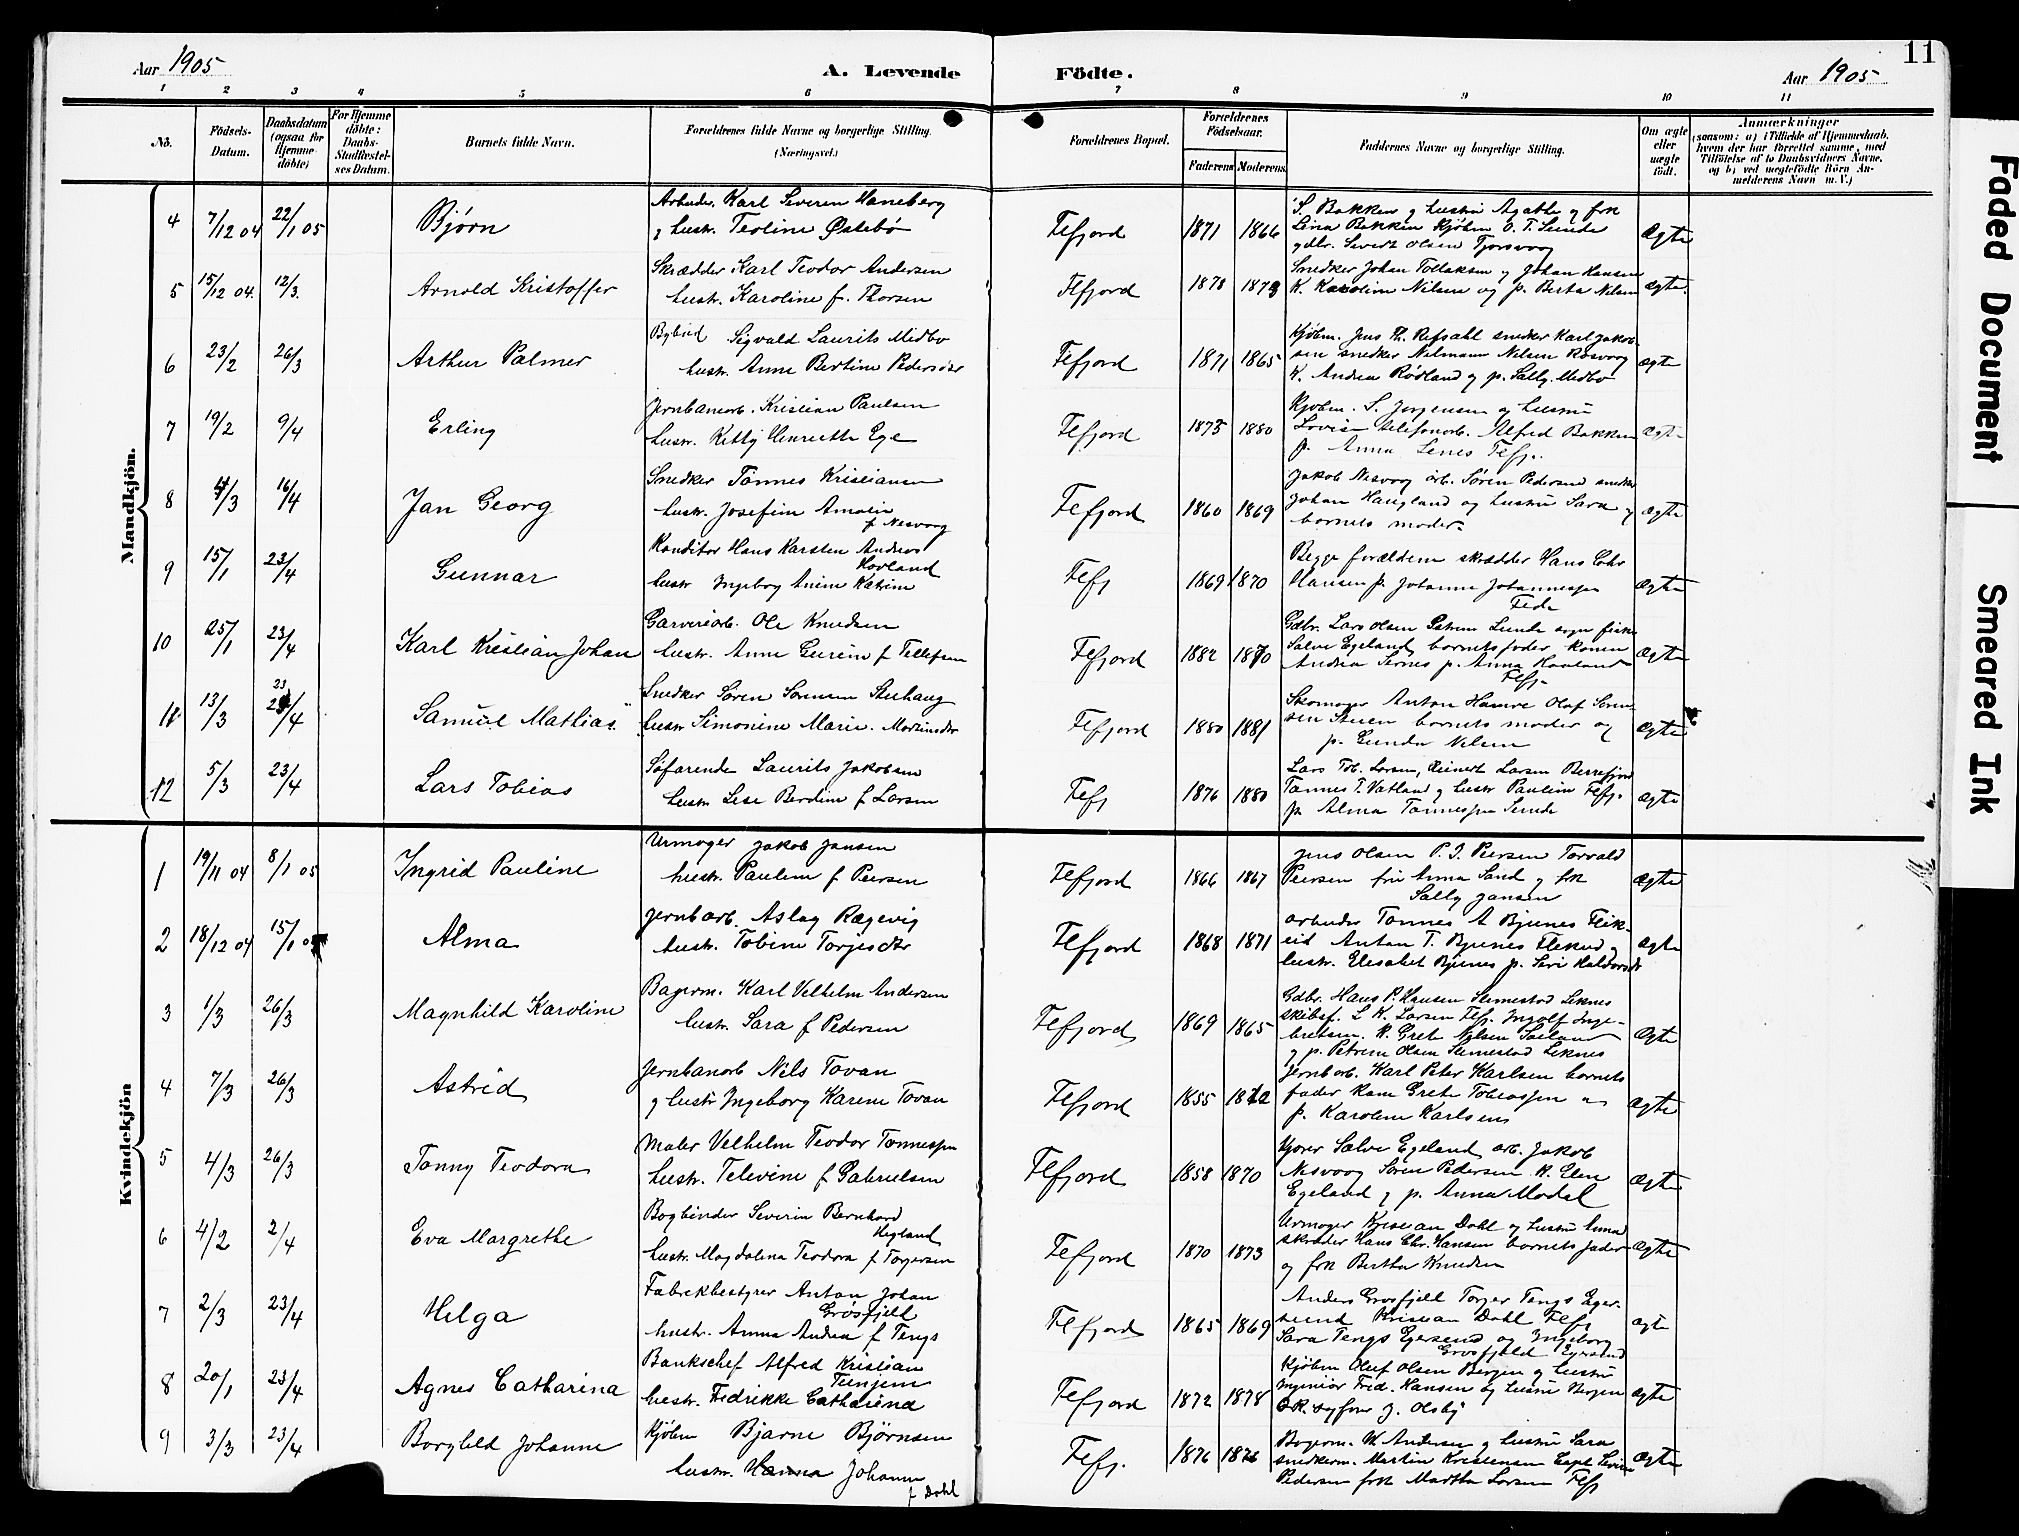 Aar 1905
A. Levende Födte.
Aar 1905
11
1 2 3 4 5 6 7 8 9 10 11
No.
Födsels-Datum.
Daabsdatum (ogsaa for Hjemme-döbte)
For Hjemme döbte: Daabs-Stadfæstel-ses Datum.
Barnets fulde Navn.
Forældrenes fulde Navne og borgerlige Stilling. (Næringsvei.)
Forældrenes Bopæl.
Forældrenes Födselsaar.
Faderens Moderens
Faddernes Navne og borgerlige Stilling.
Om ægte eller uægte födt.
Anmærkninger
(saasom: a) i Tilfælde af Hjemmedaab,
hvem der har forrettet samme, med
Tilföielse af to Daabsvidners Navne,
og b) ved uægtefödte Börn An-
melderens Navn m. V.)
Mandkjön.
4 7/12 04 22/1 05 Bjørn
Arbeider Karl Severin Haneberg
g hustr. Teoline Østebø
Flefjord 1871 1866
S. Bakken g hustru Agathe g frk
Lina Bakken Kjøbm O. T. Sunde
gdbr. Severt Olsen Tjorsvaag
Ægte
5 15/12 04. 12/3. Arnold Kristoffer
Skrædder Karl Teodor Andersen
hustr. Karoline f. Thorsen
Flefjord 1878 1873
Snedker Johan Tollaksen g Johan Hansen
K. Karoline Nilsen og p. Berta Nilsen
Ægte.
6 23/2 26/3 Arthur Palmer
Bybud Sigvald Laurits Medbo
hustr. Anne Bertine Pedersdtr
Flefjord 1871 1865
Kjøbm. Jens Th. Refsahl snedker Karl Jakob-
sen snedker Nilmann Nilsen Rosvoog
K. Andrea Rødland g p. Sally Medbo
Ægte
7 19/2 9/4 Erling
Jernbanearb. Kristian Paulsen
hustr. Kitty Henriette Ege
Flefjord 1875 1880
Kjøbm. S. Jørgensen g hustru
Lovise telefonarb. Alfred Bakken
p. Anna Lenes Flefj.
Ægte
8 4/3 16/4 Jan Georg
Snedker Tønnes Kristiansen
hustr. Josefine Amalie
f Nesvoog
Flefjord 1860 1869
Jakob Nesvoog arb. Søren Pedersen snedker
Johan Haugland og hustru Sara g
barnets moder.
Ægte
9 15/1 23/4 Gunnar
Konditor Hans Karsten Andreas
Hovland
hustr Ingeborg Anine Katrine
Flefj 1869 1870
Begge forældrene skrædder Hans Chr
Hansen p. Johanne Johannessen
Feda
Ægte
10 25/1 23/4 Karl Kristian Johan
Garveriarb. Ole Knudsen
hustr. Anne Gurine f Tellefsen
Flefjord 1882 1870
Gdbr. Lars Olsen Sunde sogn fisker
Salve Egeland barnets fader konen
Andrea p. Anna
Flefj.
Ægte
11 13/3 23/4 Samuel Mathias
Snedker Søren Sørensen Stuhaug
hustr Simonine Marie. Martinsdtr
Flefjord 1880 1881
Skomager Anton Hamre Olaf Søren-
sen barnets moder og
p. Gunda Nilsen
Ægte
12 5/3 23/4 Lars Tobias
Søfarende Laurits Jakobsen
hustr Lise Berdine f Larsen
Flefj 1876 1880
Lars Tob. Larsen, Reinert Larsen Berrefjord
Tønnes T. Vatland g hustr Pauline Flefj.
p. Alma Tønnessen Sunde
Ægte
Kvindekjön
1 19/11 04 8/1 05 Ingrid Pauline
Urmager Jakob Jansen
hustr. Pauline f Peersen
Flefjord 1866 1867
Jens Olsen P. J. Peersen Torvald
Peersen fru Anna Sand g frk
Sally Jansen
Ægte
2 18/12 04 15/1 05 Alma
Jernb arb. Aslag Rægevig
hustr. Tobine Torjesdtr
Flefjord 1868 1871
Arbeider Tønnes A Bjunes Flik-
eid Anton T. Bjunes Flikeid g
hustr. Elisabet Bjunes p. Siri Haldorsdtr
Ægte
3 1/3 26/3 Magnhild Karoline
Bagerm. Karl Velhelm Andersen
hustr. Sara f Pedersen
Flefjord 1869 1865
Gdbr. Hans P. Hansen Stemestad Leknes
skibsf. L. K. Larsen Flefj. Ingolf Inge-
bretsen. K. Grete Nilsen
g p. Petrine Olsen Stemestad Leknes
Ægte
4 7/3 26/3 Astrid
Jernbanarb Nils Tovan
g hustr Ingeborg Karine Tovan
Flefjord 1855 1872
Jernb arb. Karl Peter Karlsen barnets
fader Kone Grete Tobiassen
p. Karoline Karlsen
Ægte
5 4/3 26/3 Tonny Teodora
Maler Velhelm Teodor Tønnessen
hustr. Televine f Gabrielsen
Flefjord 1858 1870
Kjører Salve Egeland arb. Jakob
Nesvoog Søren Pedersen K. Elen
Egeland g p. Anna Modal
Ægte
6 4/2 2/4 Eva Margrethe
Bogbinder Severin Bernhard
Hegland
hustr. Magdalena Teodora f Torgersen
Flefjord 1870 1873
Urmager Kristian Dahl og hustru Anna
skræder Hans Chr. Hansen barnets fader
og frk Bertha Knudsen
Ægte
7 2/3 23/4 Helga
Fabrikbestyrer Anton Johan
Grøsfjell
hustr. Anna Andrea f Tengs
Flefjord 1865 1869
Anders Grøsfjell Torger Tengs Eger-
sund Kristian Dahl Flefj
Sara Tengs Egersund og Ingeborg
Grøsfjeld Egersund
Ægte
8 20/1 23/4 Agnes Catharina
Bankschef Alfred Kristian
hustr. Fredrikke Catharina
Flefjord 1872 1878
Kjøbm Oluf Olsen Bergen g hustru
Ingeniør Fred. Hansen og hustru Bergen
J. Olsby
Ægte
9 3/3 23/4 Borghild Johanne
Kjøbm Bjarne Bjørnsen
hustr. Hanna Johanne
f Dahl
Flefj. 1876 1876
Bagerm. K Andersen g hustru Sara
snedkerm. Martin Kristensen Capt Severin
Pedersen frk Martha Larsen Flefj
Ægte
Faded Document
Smeared Ink